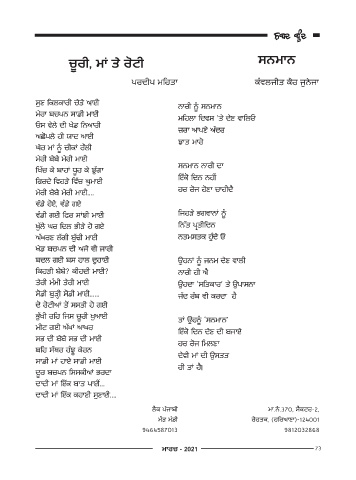 ਚੂਰੀ, ਮਾਂ ਤੇ ਰੋਟੀ
ਪਰਦੀਪ ਮਹਿਤਾ
ਸੁਣ ਕਿਲਕਾਰੀ ਚੇਤੇ ਆਈ
ਮੇਰਾ ਬਚਪਨ ਸਾਡੀ ਮਾਈ
ਓਸ ਵੇਲੇ ਦੀ ਖੇਡ ਨਿਆਰੀ
ਅਛੋਪਲੇ ਹੀ ਯਾਦ ਆਈ
ਘੋਰ ਮਾਂ ਨੂੰ ਚੀਕਾਂ ਹੌਲੀ
ਮੇਰੀ ਬੇਬੇ ਮੇਰੀ ਮਾਈ
ਖਿੱਚ ਕੇ ਬਾਹਾਂ ਧੂਹ ਕੇ ਝੁੱਗਾ
ਗਿਰਦੇ ਵਿਹੜੇ ਵਿੱਚ ਘੁਮਾਈ
ਮੇਰੀ ਬੇਬੇ ਮੇਰੀ ਮਾਈ....
ਵੱਡੇ ਹੋਏ, ਵੰਡੇ ਗਏ
ਵੰਡੀ ਗਈ ਫਿਰ ਸਾਂਝੀ ਮਾਈ
ਖੁੱਲੇ ਘਰ ਦਿਲ ਭੀੜੇ ਹੋ ਗਏ
ਔਖਰਣ ਲੱਗੀ ਬੁੱਢੀ ਮਾਈ
ਖੇਡ ਬਚਪਨ ਦੀ ਅਜੇ ਵੀ ਜਾਰੀ
ਬਦਲ ਗਈ ਬਸ ਹਾਲ ਦੁਹਾਈ
ਕਿਹੜੀ ਬੇਬੇ? ਕੀਹਦੀ ਮਾਈ?
ਤੇਰੀ ਮੰਮੀ ਤੇਰੀ ਮਾਈ
ਸੋਡੀ ਬੁੜ੍ਹੀ ਸੋਡੀ ਮਾਈ.....
ਦੋ ਰੋਟੀਆਂ ਤੋਂ ਸਸਤੀ ਹੋ ਗਈ
ਭੁੱਖੀ ਰਹਿ ਜਿਸ ਚੂਰੀ ਖੁਆਈ
ਮੀਟ ਗਈ ਅੱਖਾਂ ਆਖਰ
ਸਭ ਦੀ ਬੇਬੇ ਸਭ ਦੀ ਮਾਈ
ਬਹਿ ਸੱਥਰ ਹੰਝੂ ਕੇਰਨ
ਸਾਡੀ ਮਾਂ ਹਾਏ ਸਾਡੀ ਮਾਈ
ਦੂਰ ਬਚਪਨ ਸਿਸਕੀਆਂ ਭਰਦਾ
ਦਾਦੀ ਮਾਂ ਇੱਕ ਬਾਤ ਪਾਈਂ...
ਦਾਦੀ ਮਾਂ ਇੱਕ ਕਹਾਣੀ ਸੁਣਾਈਂ....
ਲੋਕ ਪੰਜਾਬੀ
ਮੌੜ ਮੰਡੀ
9464587013
ਸਨਮਾਨ
ਕੰਵਲਜੀਤ ਕੌਰ ਜੁਨੇਜਾ
ਨਾਰੀ ਨੂੰ ਸਨਮਾਨ
ਮਹਿਲਾ ਦਿਵਸ 'ਤੇ ਦੇਣ ਵਾਲਿਓ
ਜ਼ਰਾ ਆਪਣੇ ਅੰਦਰ
ਝਾਤ ਮਾਰੋ
ਸਨਮਾਨ ਨਾਰੀ ਦਾ
ਇੱਕੋ ਦਿਨ ਨਹੀਂ
ਹਰ ਰੋਜ਼ ਹੋਣਾ ਚਾਹੀਦੈ
ਜਿਹੜੇ ਭਗਵਾਨਾਂ ਨੂੰ
ਨਿੱਤ ਪ੍ਰਤੀਦਿਨ
ਨਤਮਸਤਕ ਹੁੰਦੇ ਓ
ਉਹਨਾਂ ਨੂੰ ਜਨਮ ਦੇਣ ਵਾਲੀ
ਨਾਰੀ ਹੀ ਐ
ਉਹਦਾ 'ਸਤਿਕਾਰ' ਤੇ ਉਪਾਸਨਾ
ਜਦ ਰੱਬ ਵੀ ਕਰਦਾ ਹੈ
ਤਾਂ ਉਹਨੂੰ 'ਸਨਮਾਨ'
ਇੱਕੋ ਦਿਨ ਦੇਣ ਦੀ ਬਜਾਏ
ਹਰ ਰੋਜ਼ ਮਿਲਣਾ
ਦੇਵੀ ਮਾਂ ਦੀ ਉਸਤਤ
ਹੀ ਤਾਂ ਹੈ।
ਮਾ.ਨੰ.370, ਸੈਕਟਰ-2,
ਰੋਹਤਕ, (ਹਰਿਆਣਾ)-124001
9812032868
ਮਾਰਚ - 2021
73